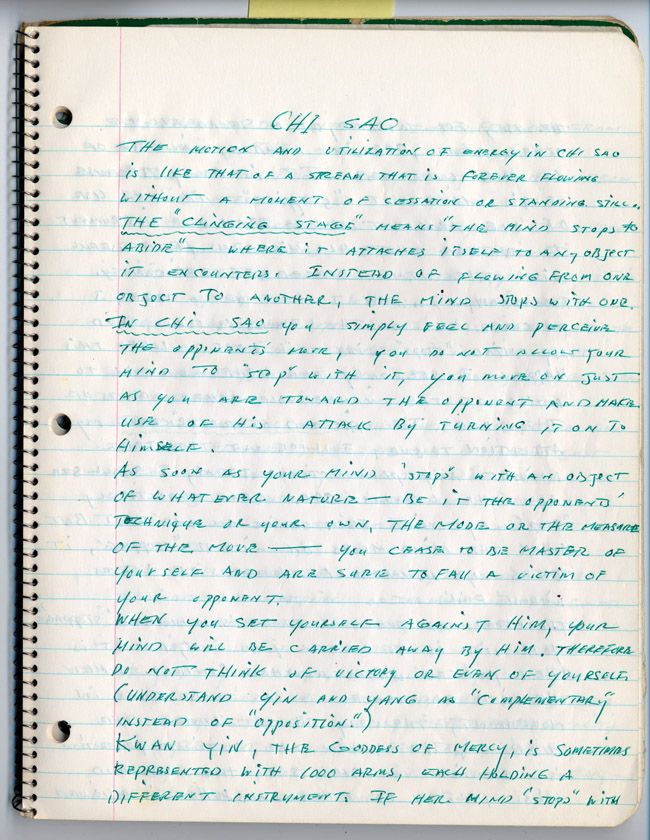 CHI SAO
THE MOTION AND UTILIZATION OF ENERGY IN CHI SAO
IS LIKE THAT OF A STREAM THAT IS FOREVER FLOWING
WITHOUT A MOMENT OF CESSATION OR STANDING STILL.
THE "CLINGING STAGE" MEANS "THE MIND STOPS TO
ABIDE" — WHERE IT ATTACHES ITSELF TO ANY OBJECT
IT ENCOUNTERS. INSTEAD OF FLOWING FROM ONE
OBJECT TO ANOTHER, THE MIND STOPS WITH ONE.
IN CHI SAO YOU SIMPLY FEEL AND PERCEIVE
THE OPPONENTS' MOVE, YOU DO NOT ALLOW YOUR
MIND TO "STOP" WITH IT, YOU MOVE ON JUST
AS YOU ARE TOWARD THE OPPONENT AND MAKE
USE OF HIS ATTACK BY TURNING IT ON TO
HIMSELF.
AS SOON AS YOUR MIND "STOPS" WITH AN OBJECT
OF WHATEVER NATURE — BE IT THE OPPONENTS'
TECHNIQUE OR YOUR OWN, THE MODE OR THE MEASURE
OF THE MOVE — YOU CEASE TO BE MASTER OF
YOURSELF AND ARE SURE TO FALL A VICTIM OF
YOUR OPPONENT.
WHEN YOU SET YOURSELF AGAINST HIM, YOUR
MIND WILL BE CARRIED AWAY BY HIM. THEREFORE
DO NOT THINK OF VICTORY OR EVEN OF YOURSELF.
(UNDERSTAND YIN AND YANG AS "COMPLEMENTARY"
INSTEAD OF "OPPOSITION.")
KWAN YIN, THE GODDESS OF MERCY, IS SOMETIMES
REPRESENTED WITH 1000 ARMS, EACH HOLDING A
DIFFERENT INSTRUMENT. IF HER MIND "STOPS" WITH